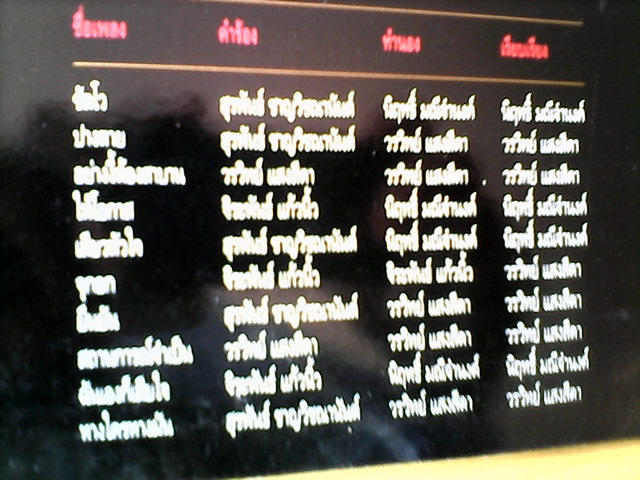 ชื่อเพลง คำร้อง ทำนอง เรียบเรียง
สุรพันธ์ ชาญวิชณานันต์ นิฤทธิ์ มณีจำนงค์ นิฤทธิ์ มณีจำนงค์
ปางตาย สุรพันธ์ ชาญวิชณานันต์ วรวิทย์ แสงสีดา วรวิทย์ แสงสีดา
อย่างนี้ต้องสาบาน วรวิทย์ แสงสีดา วรวิทย์ แสงสีดา วรวิทย์ แสงสีดา
จิระพันธ์ แก้วนิ้ว นิฤทธิ์ มณีจำนงค์ นิฤทธิ์ มณีจำนงค์
เสียวหัวใจ สุรพันธ์ ชาญวิชณานันต์ นิฤทธิ์ มณีจำนงค์ นิฤทธิ์ มณีจำนงค์
จิระพันธ์ แก้วนิ้ว จิระพันธ์ แก้วนิ้ว วรวิทย์ แสงสีดา
สุรพันธ์ ชาญวิชณานันต์ วรวิทย์ แสงสีดา วรวิทย์ แสงสีดา
สถานการณ์จำเป็น วรวิทย์ แสงสีดา วรวิทย์ แสงสีดา วรวิทย์ แสงสีดา
ฉันเองก็เสียใจ จิระพันธ์ แก้วนิ้ว นิฤทธิ์ มณีจำนงค์ นิฤทธิ์ มณีจำนงค์
ทางใครทางมัน สุรพันธ์ ชาญวิชณานันต์ วรวิทย์ แสงสีดา วรวิทย์ แสงสีดา